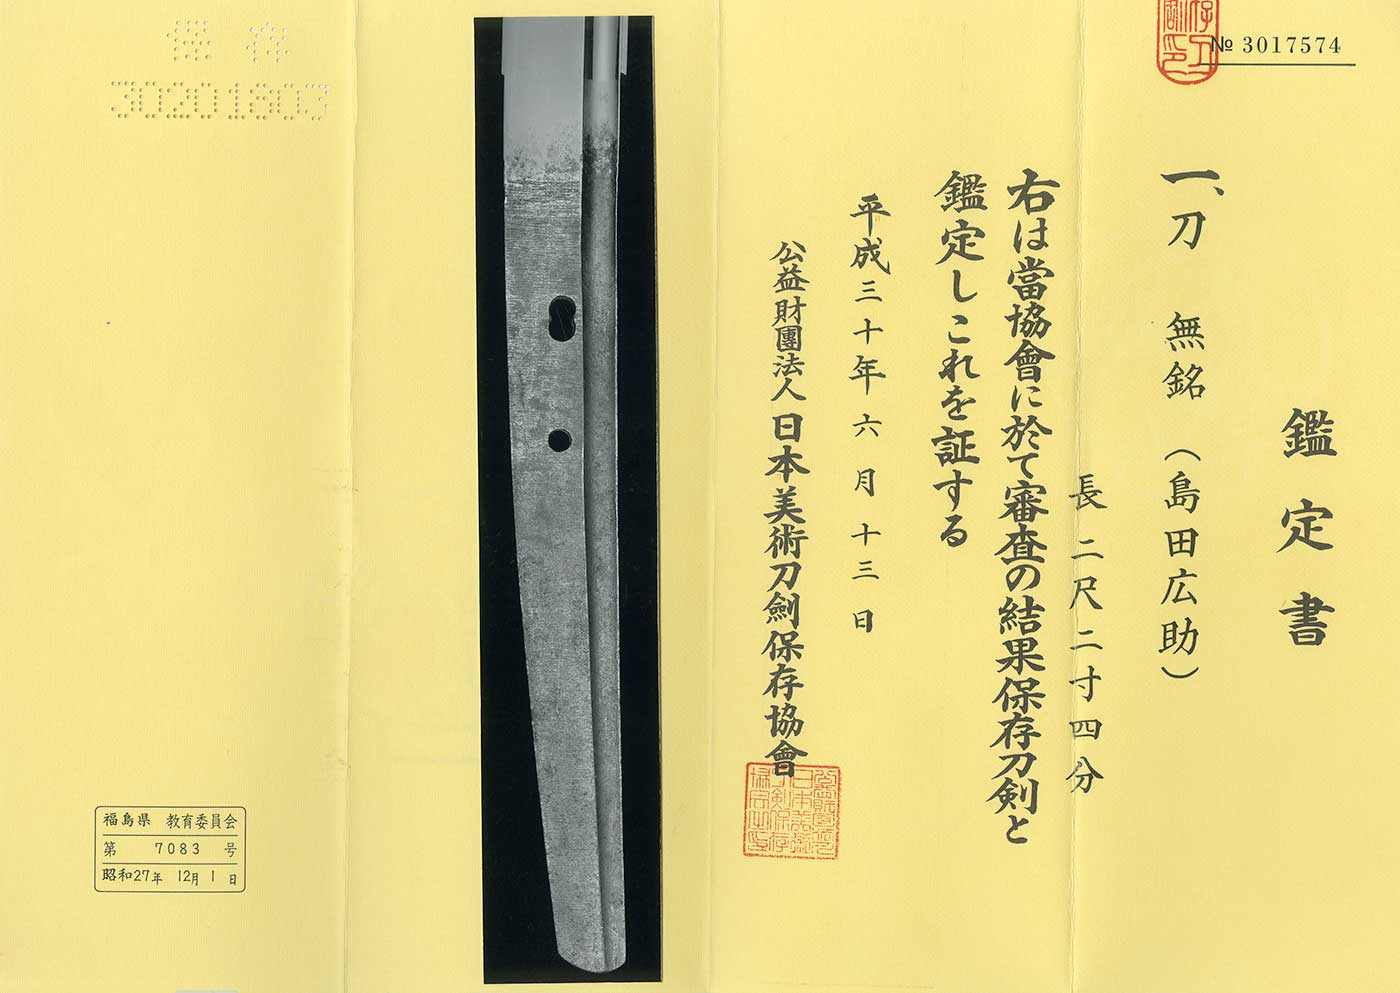 № 3017574
鑑定書
一、刀 無銘（島田広助）
長 二尺二寸四分
右は當協會に於て審査の結果保存刀剣と
鑑定しこれを証する
平成三十年六月十三日
公益財團法人 日本美術刀劍保存協會
保存
30201803
福島県 教育委員会
第 7083 号
昭和27年 12月 1日